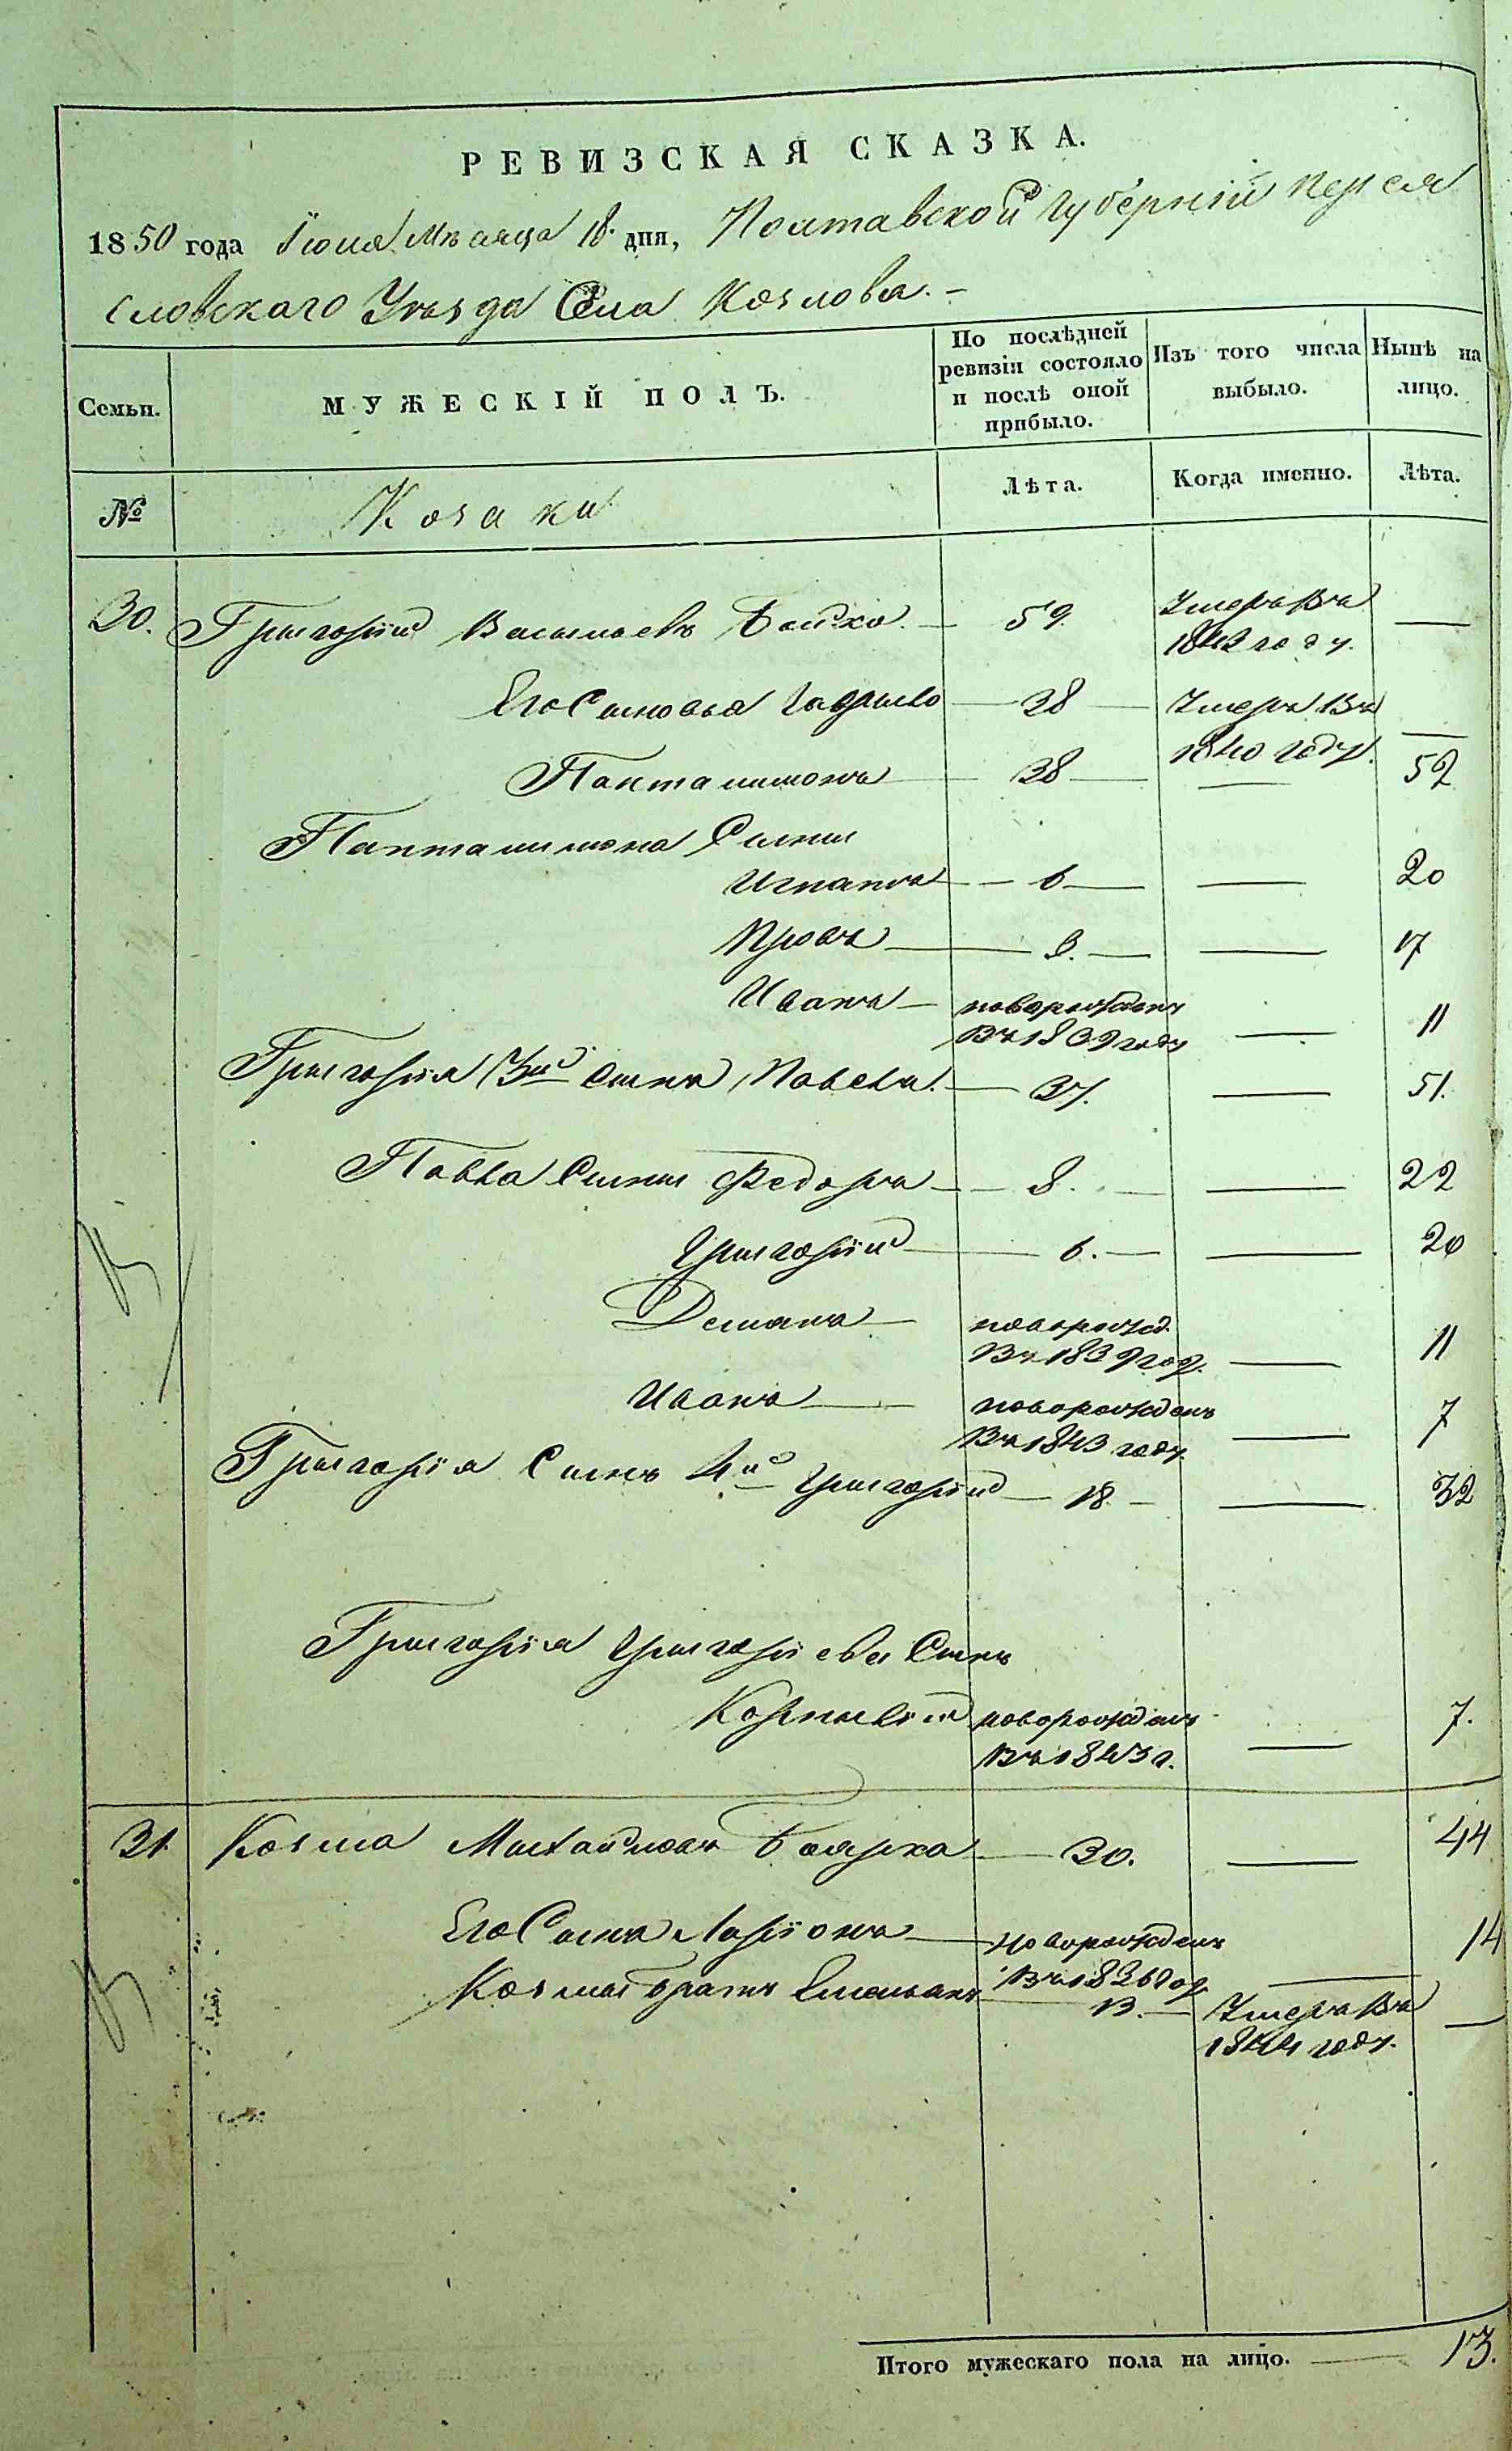 РЕВИЗСКАЯ СКАЗКА.
1850 года Іюня Мѣсяца 18 дня, Полтавской Губерніи Перея
словскаго Уѣзда Села Козлова.-
Семьи. МУЖЕСКІЙ ПОЛЪ. По послѣдней ревизіи состояло и послѣ оной прибыло. Изъ того числа выбыло. Нынѣ на лицо.
№ Козаки Лѣта. Когда именно. Лѣта.
30. Григорій Васильевъ Бойко — 59. Умеръ въ 1842 году. —
Его Сыновья Гаврило — 38 — Умеръ въ 1840 году. —
Панталимонъ — 38 — — 52
Панталимона Сыны
Игнатъ — 6 — — 20
Провъ — 3. — — 17
Иванъ — новорожденъ въ 1839 году — 11
Григорія 3й сынъ Павелъ. — 37. — 51.
Павла Сыны Федоръ — 8. — — 22
Григорій — 6. — — 20
Демянъ — новорожд. въ 1839 год. — 11
Иванъ — новорожденъ въ 1843 году. — 7
Григорія Сынъ 4й Григорій — 18 — — 32
Григорія Григоріева Сынъ
Корнилій новорожденъ въ 1843 г. — 7.
31. Козма Михайловъ Боярко — 30. — 44
Его Сынъ Ларіонъ — новорожденъ въ 1836 год. — 14
Козмы братъ Емельянъ — 13. — Умеръ въ 1844 году. —
Итого мужескаго пола на лицо. — 13.